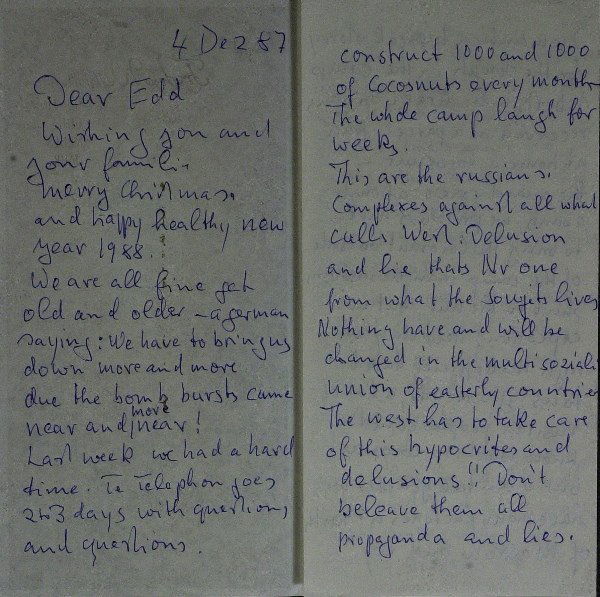 4 Dez 87
Dear Edd
Wishing you and
your famili.
merry Christmas.
and happy healthy new
year 1988.
We are all fine get
old and older – a german
saying: We have to bring us
down more and more
due the bomb bursts came
near and more near!
Last week we had a hard
time. Te Telephon goes
2 to 3 days with questions
and questions.
construct 1000 and 1000
of Cocosnuts every month
The whole camp laugh for
weeks.
This are the russians.
Complexes against all what
calls West. Delusion
and lie thats Nr one
from what the Sovjets lives
Nothing have and will be
changed in the multi soziali
union of easterly countries
The west has to take care
of this hypocrites and
delusions!! Don't
beleave them all
propaganda and lies.